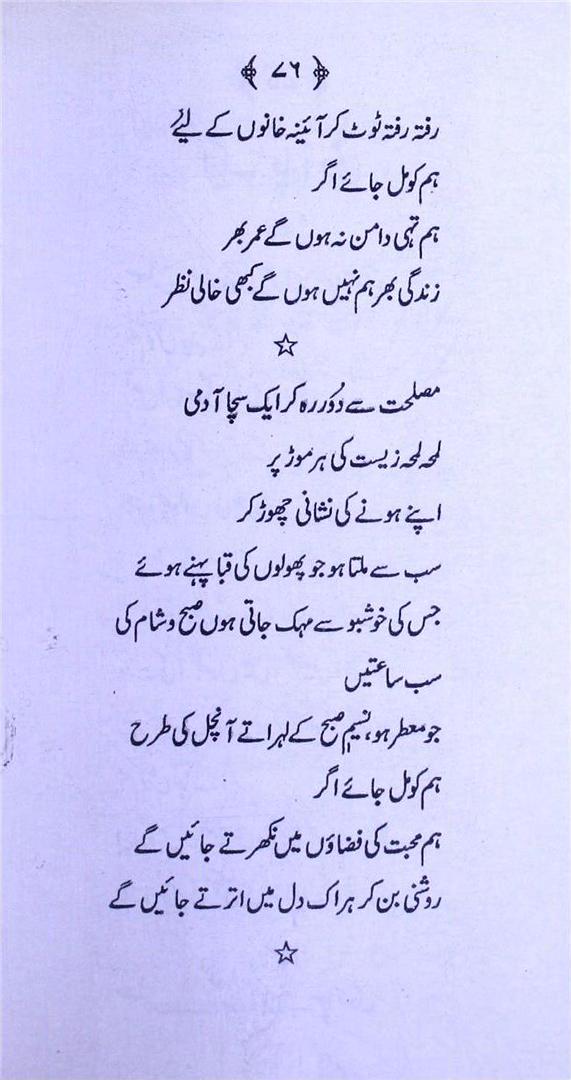 ﴿ ۷۶ ﴾
رفتہ رفتہ ٹوٹ کر آئینہ خانوں کے لئے
ہم کو مل جائے اگر
ہم تہی دامن نہ ہوں گے عمر بھر
زندگی بھر ہم نہیں ہوں گے کبھی خالی نظر
☆
مصلحت سے دُور رہ کر ایک سچا آدمی
لمحہ لمحہ زیست کی ہر موڑ پر
اپنے ہونے کی نشانی چھوڑ کر
سب سے ملتا ہو جو پھولوں کی قبا پہنے ہوئے
جس کی خوشبو سے مہک جاتی ہوں صبح و شام کی
سب ساعتیں
جو معطر ہو، نسیمِ صبح کے لہراتے آنچل کی طرح
ہم کو مل جائے اگر
ہم محبت کی فضاؤں میں نکھرتے جائیں گے
روشنی بن کر ہر اک دل میں اترتے جائیں گے
☆